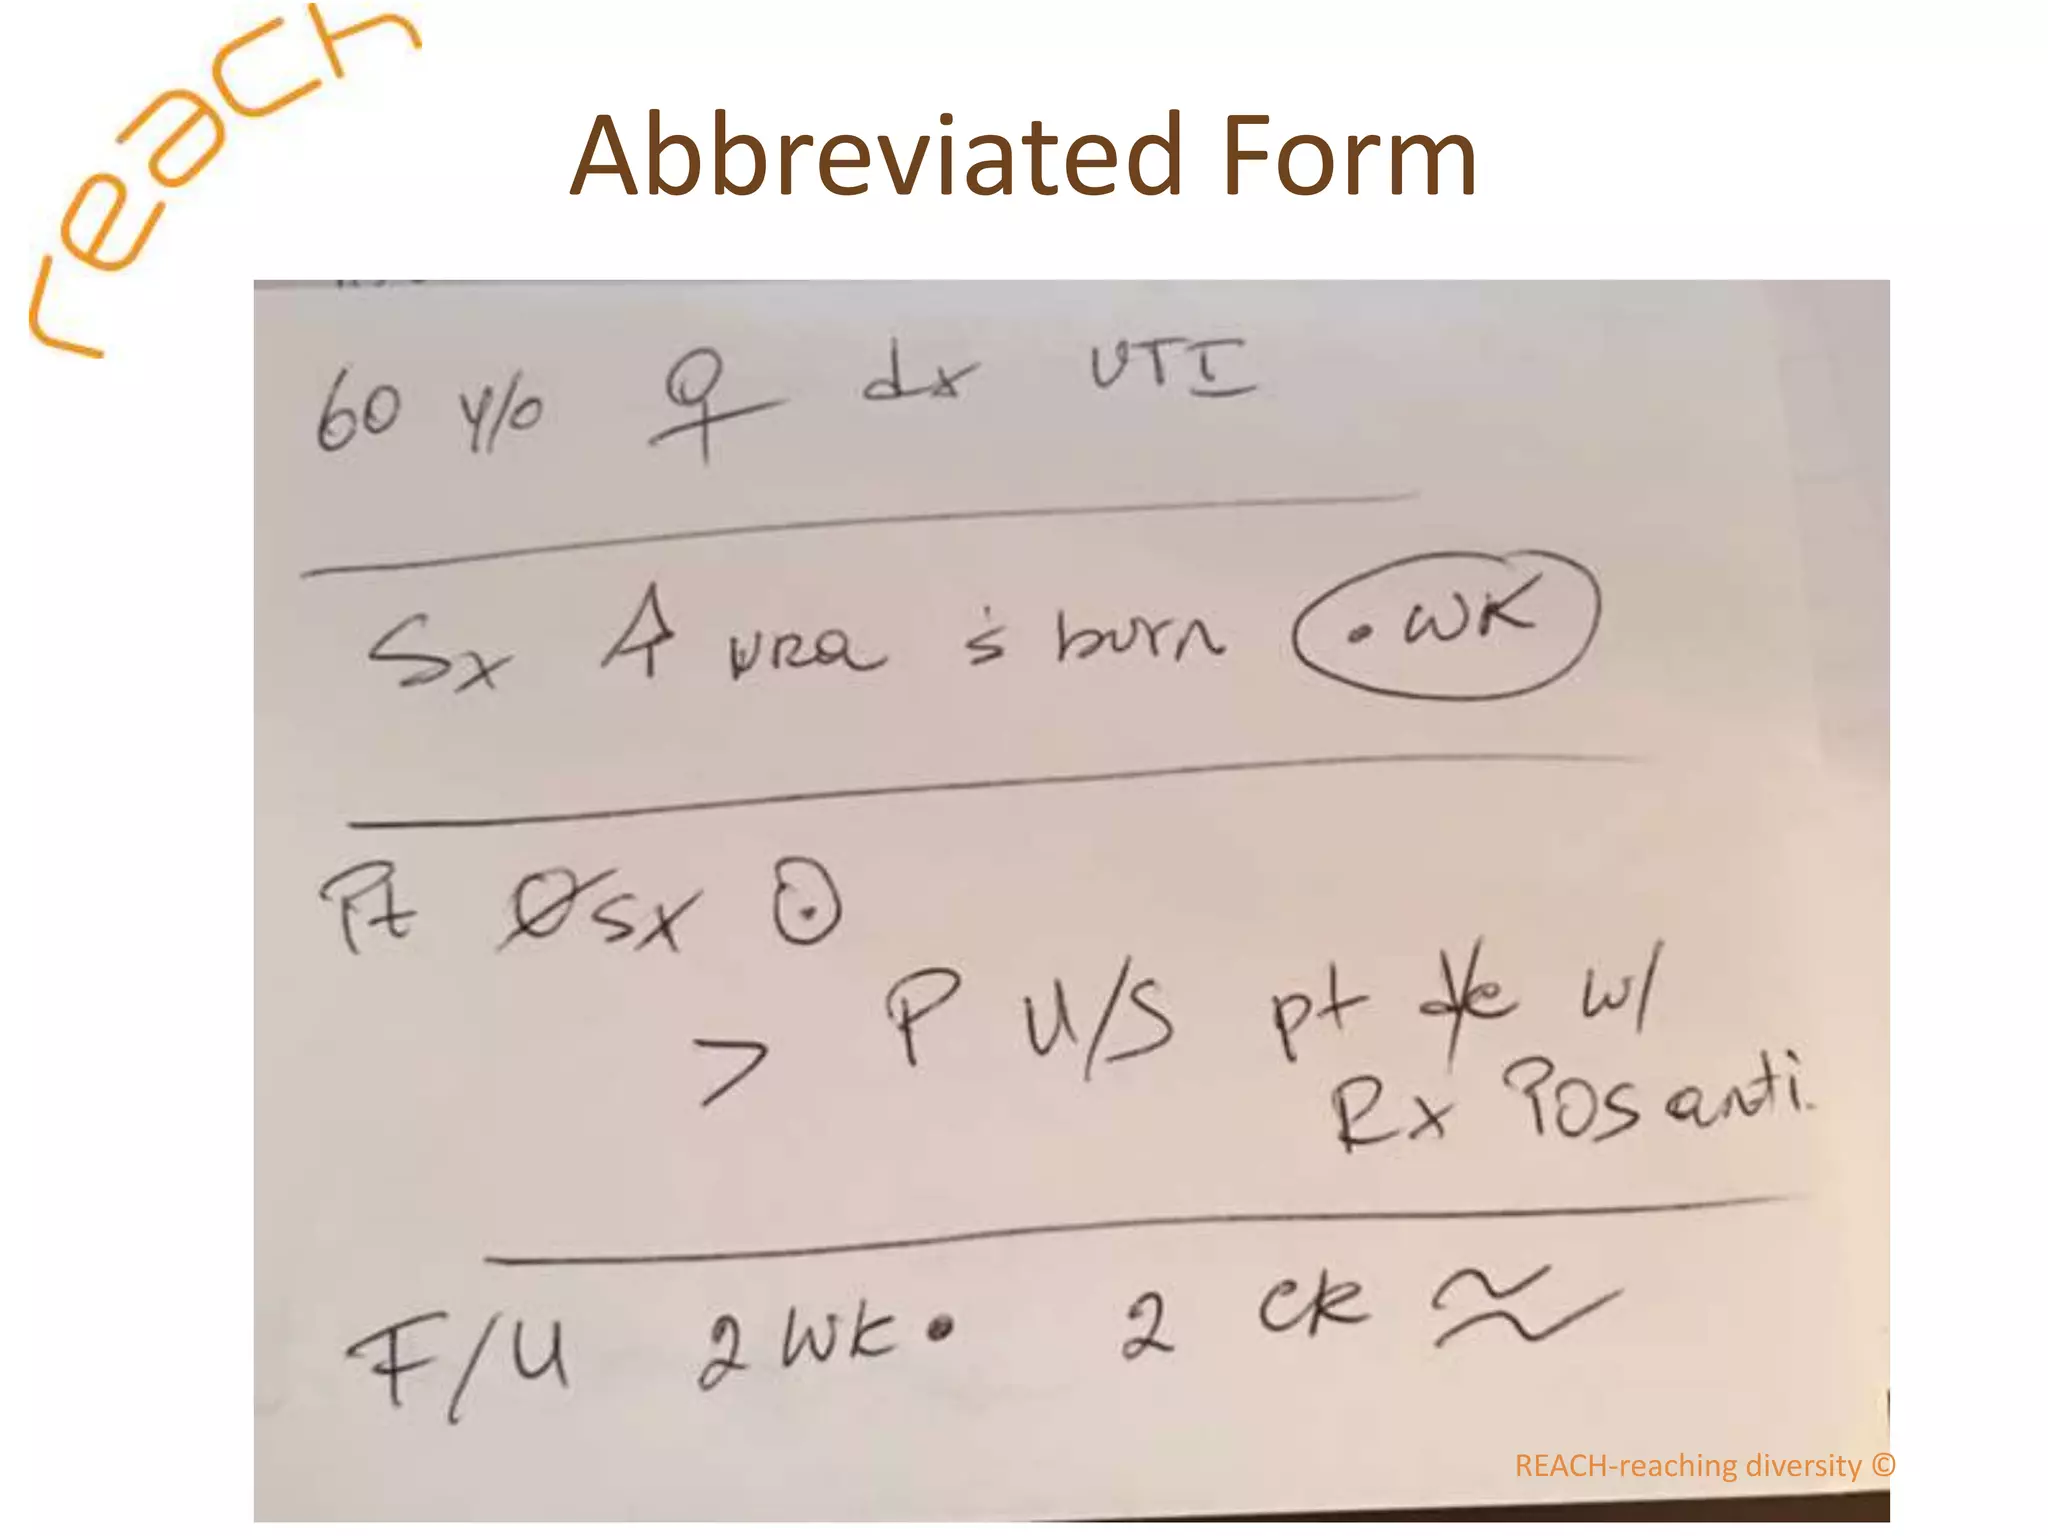 reach
Abbreviated Form
60 y/o ♀ dx UTI
Sx ↑ URA s burn •WK
Pt Øsx ⊙
> P U/S pt d/c w/
Rx POS anti.
F/U 2 wk • 2 CK ≈
REACH-reaching diversity ©